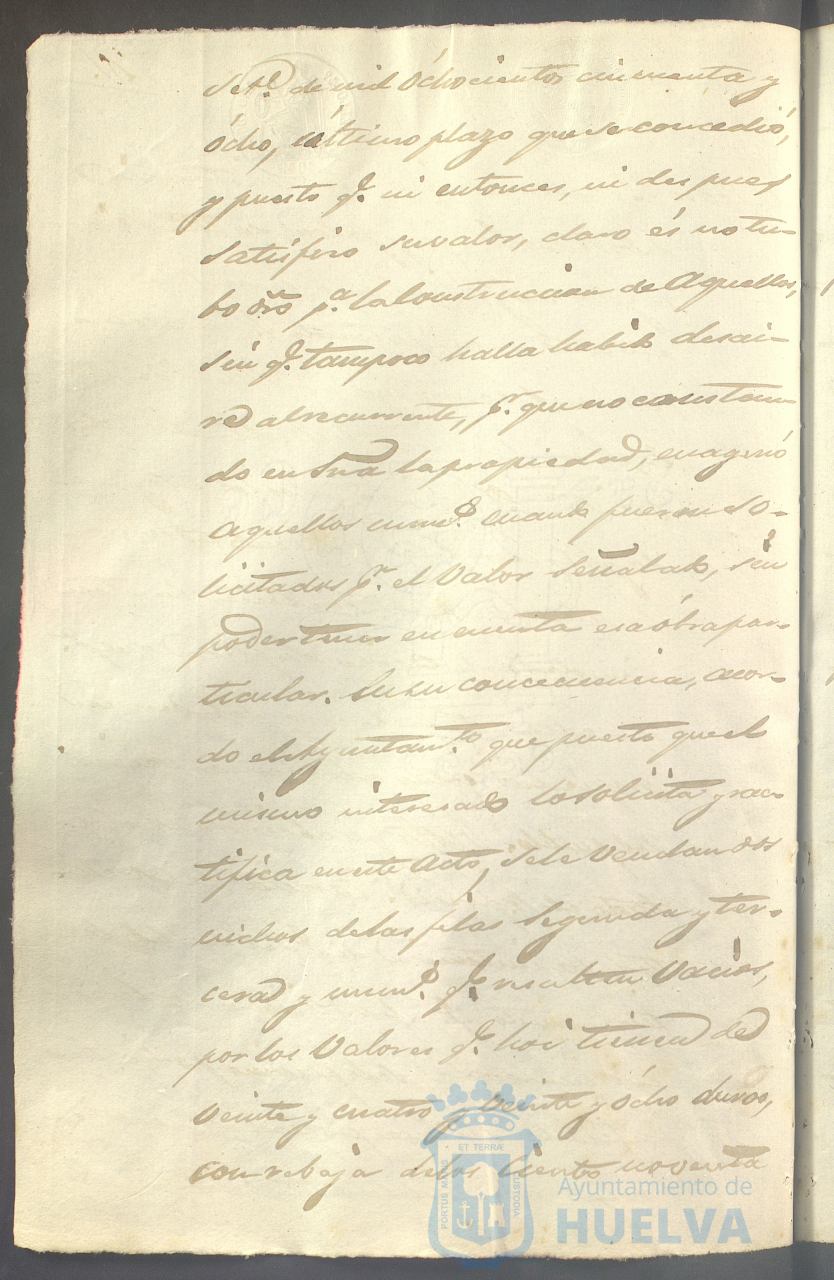 Set.e de mil ochocientos cincuenta y
ócho, último plazo que se concedió,
y puesto q.e ni entonces, ni despues
satisfizo su valor, claro és no tu-
bo dro p.a la Construccion de Aquellos,
sin q.e tampoco halla habido desai-
re al recurrente, p.r que no constan-
do en Sria la propiedad, enagenó
aquellos num.s cuando fueron so-
licitados p.r el Valor Señalado, sin
poder tener en cuenta esa óbra par-
ticular. En su concecuencia, acor-
do el Ayuntam.to que puesto que el
mismo interesado lo solicita y rac-
tifica en este Acto, se le vendan dos
nichos de las filas Segunda y ter-
cera y num.s q.e resulten Vacios,
por los Valores q.e hoi tienen de
Veinte y cuatro y Veinte y ócho duros,
con rebaja de los Ciento noventa
PORTUS MARIS ET TERRÆ CUSTODIA
Ayuntamiento de
HUELVA